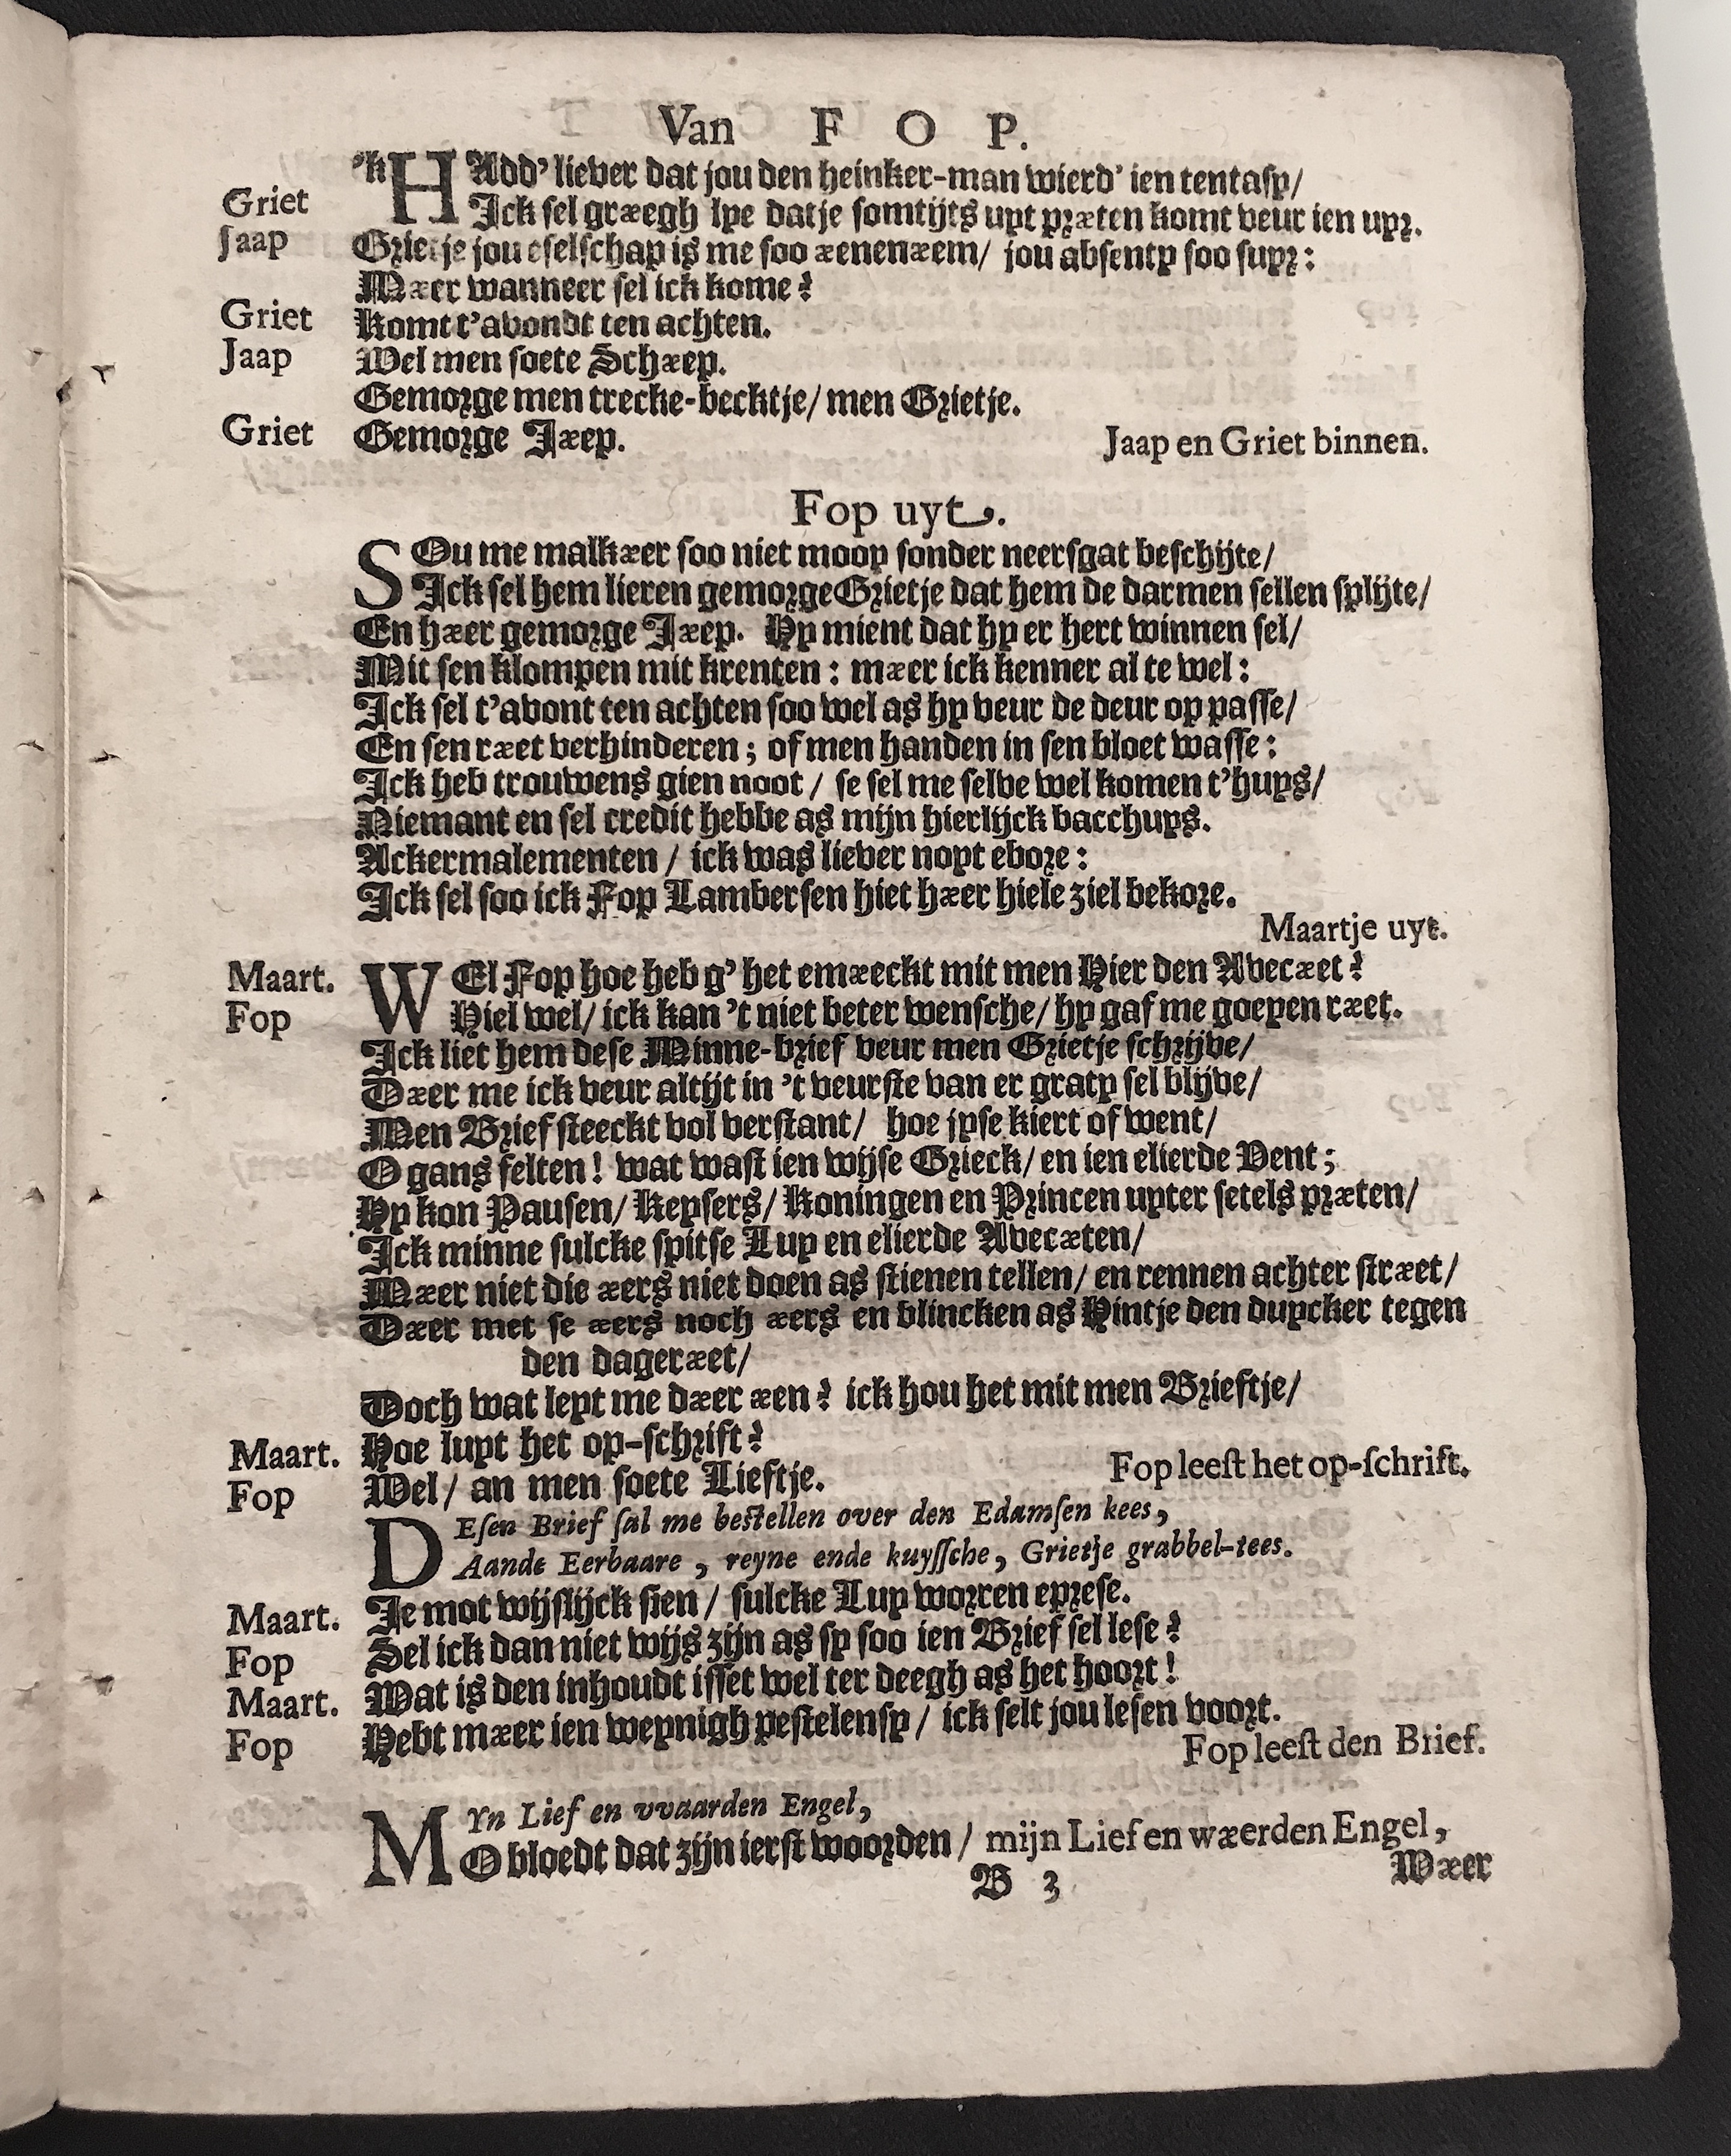 Van F O P.
'k HAdd' liever dat jou den heinker-man wierd' ien tentasy/
Griet Ick sel græegh lye datje somtijts uyt præten komt veur ien uyr.
Jaap Grietje jou eselschap is me soo æenenæem/ jou absenty soo suyr:
Mæer wanneer sel ick kome?
Griet Komt t'avondt ten achten.
Jaap Wel men soete Schæep.
Gemorge men trecke-becktje/ men Grietje.
Griet Gemorge Jæep. Jaap en Griet binnen.
Fop uyt.
SOu me malkæer soo niet mooy sonder neersgat beschijte/
Ick sel hem lieren gemorge Grietje dat hem de darmen sellen splijte/
En hæer gemorge Jæep. Hy mient dat hy er hert winnen sel/
Mit sen klompen mit krenten: mæer ick kenner al te wel:
Ick sel t'avont ten achten soo wel as hy veur de deur op passe/
En sen ræet verhinderen; of men handen in sen bloet wasse:
Ick heb trouwens gien noot/ se sel me selve wel komen t'huys/
Niemant en sel credit hebbe as mijn hierlijck bacchuys.
Ackermalementen/ ick was liever noyt ebore:
Ick sel soo ick Fop Lambersen hiet hæer hiele ziel bekore.
Maartje uyt.
Maart. WEl Fop hoe heb g' het emæeckt mit men Hier den Avecæet?
Fop Hiel wel/ ick kan 't niet beter wensche/ hy gaf me goeyen ræet.
Ick liet hem dese Minne-brief veur men Grietje schrijve/
Dæer me ick veur altijt in 't veurste van er graty sel blijve/
Men Brief steeckt vol verstant/ hoe jyse kiert of went/
O gans felten! wat wast ien wijse Grieck/ en ien elierde Vent;
Hy kon Pausen/ Keysers/ Koningen en Princen uyter setels præten/
Ick minne sulcke spitse Luy en elierde Avecæten/
Mæer niet die æers niet doen as stienen tellen/ en rennen achter stræet/
Dæer met se æers noch æers en blincken as Hintje den duycker tegen
den dageræet/
Doch wat leyt me dæer æen? ick hou het mit men Brieftje/
Maart. Hoe luyt het op-schrift?
Fop Wel/ an men soete Lieftje. Fop leest het op-schrift.
DEsen Brief sal me bestellen over den Edamsen kees,
Aande Eerbaare, reyne ende kuyssche, Grietje grabbel-tees.
Maart. Je mot wijslijck sien/ sulcke Luy worren eprese.
Fop Sel ick dan niet wijs zijn as sy soo ien Brief sel lese?
Maart. Wat is den inhoudt isset wel ter deegh as het hoort!
Fop Hebt mæer ien weynigh pestelensy/ ick selt jou lesen voort.
Fop leest den Brief.
MYn Lief en vvaarden Engel,
O bloedt dat zijn ierst woorden/ mijn Lief en wæerden Engel,
B 3 Wæer